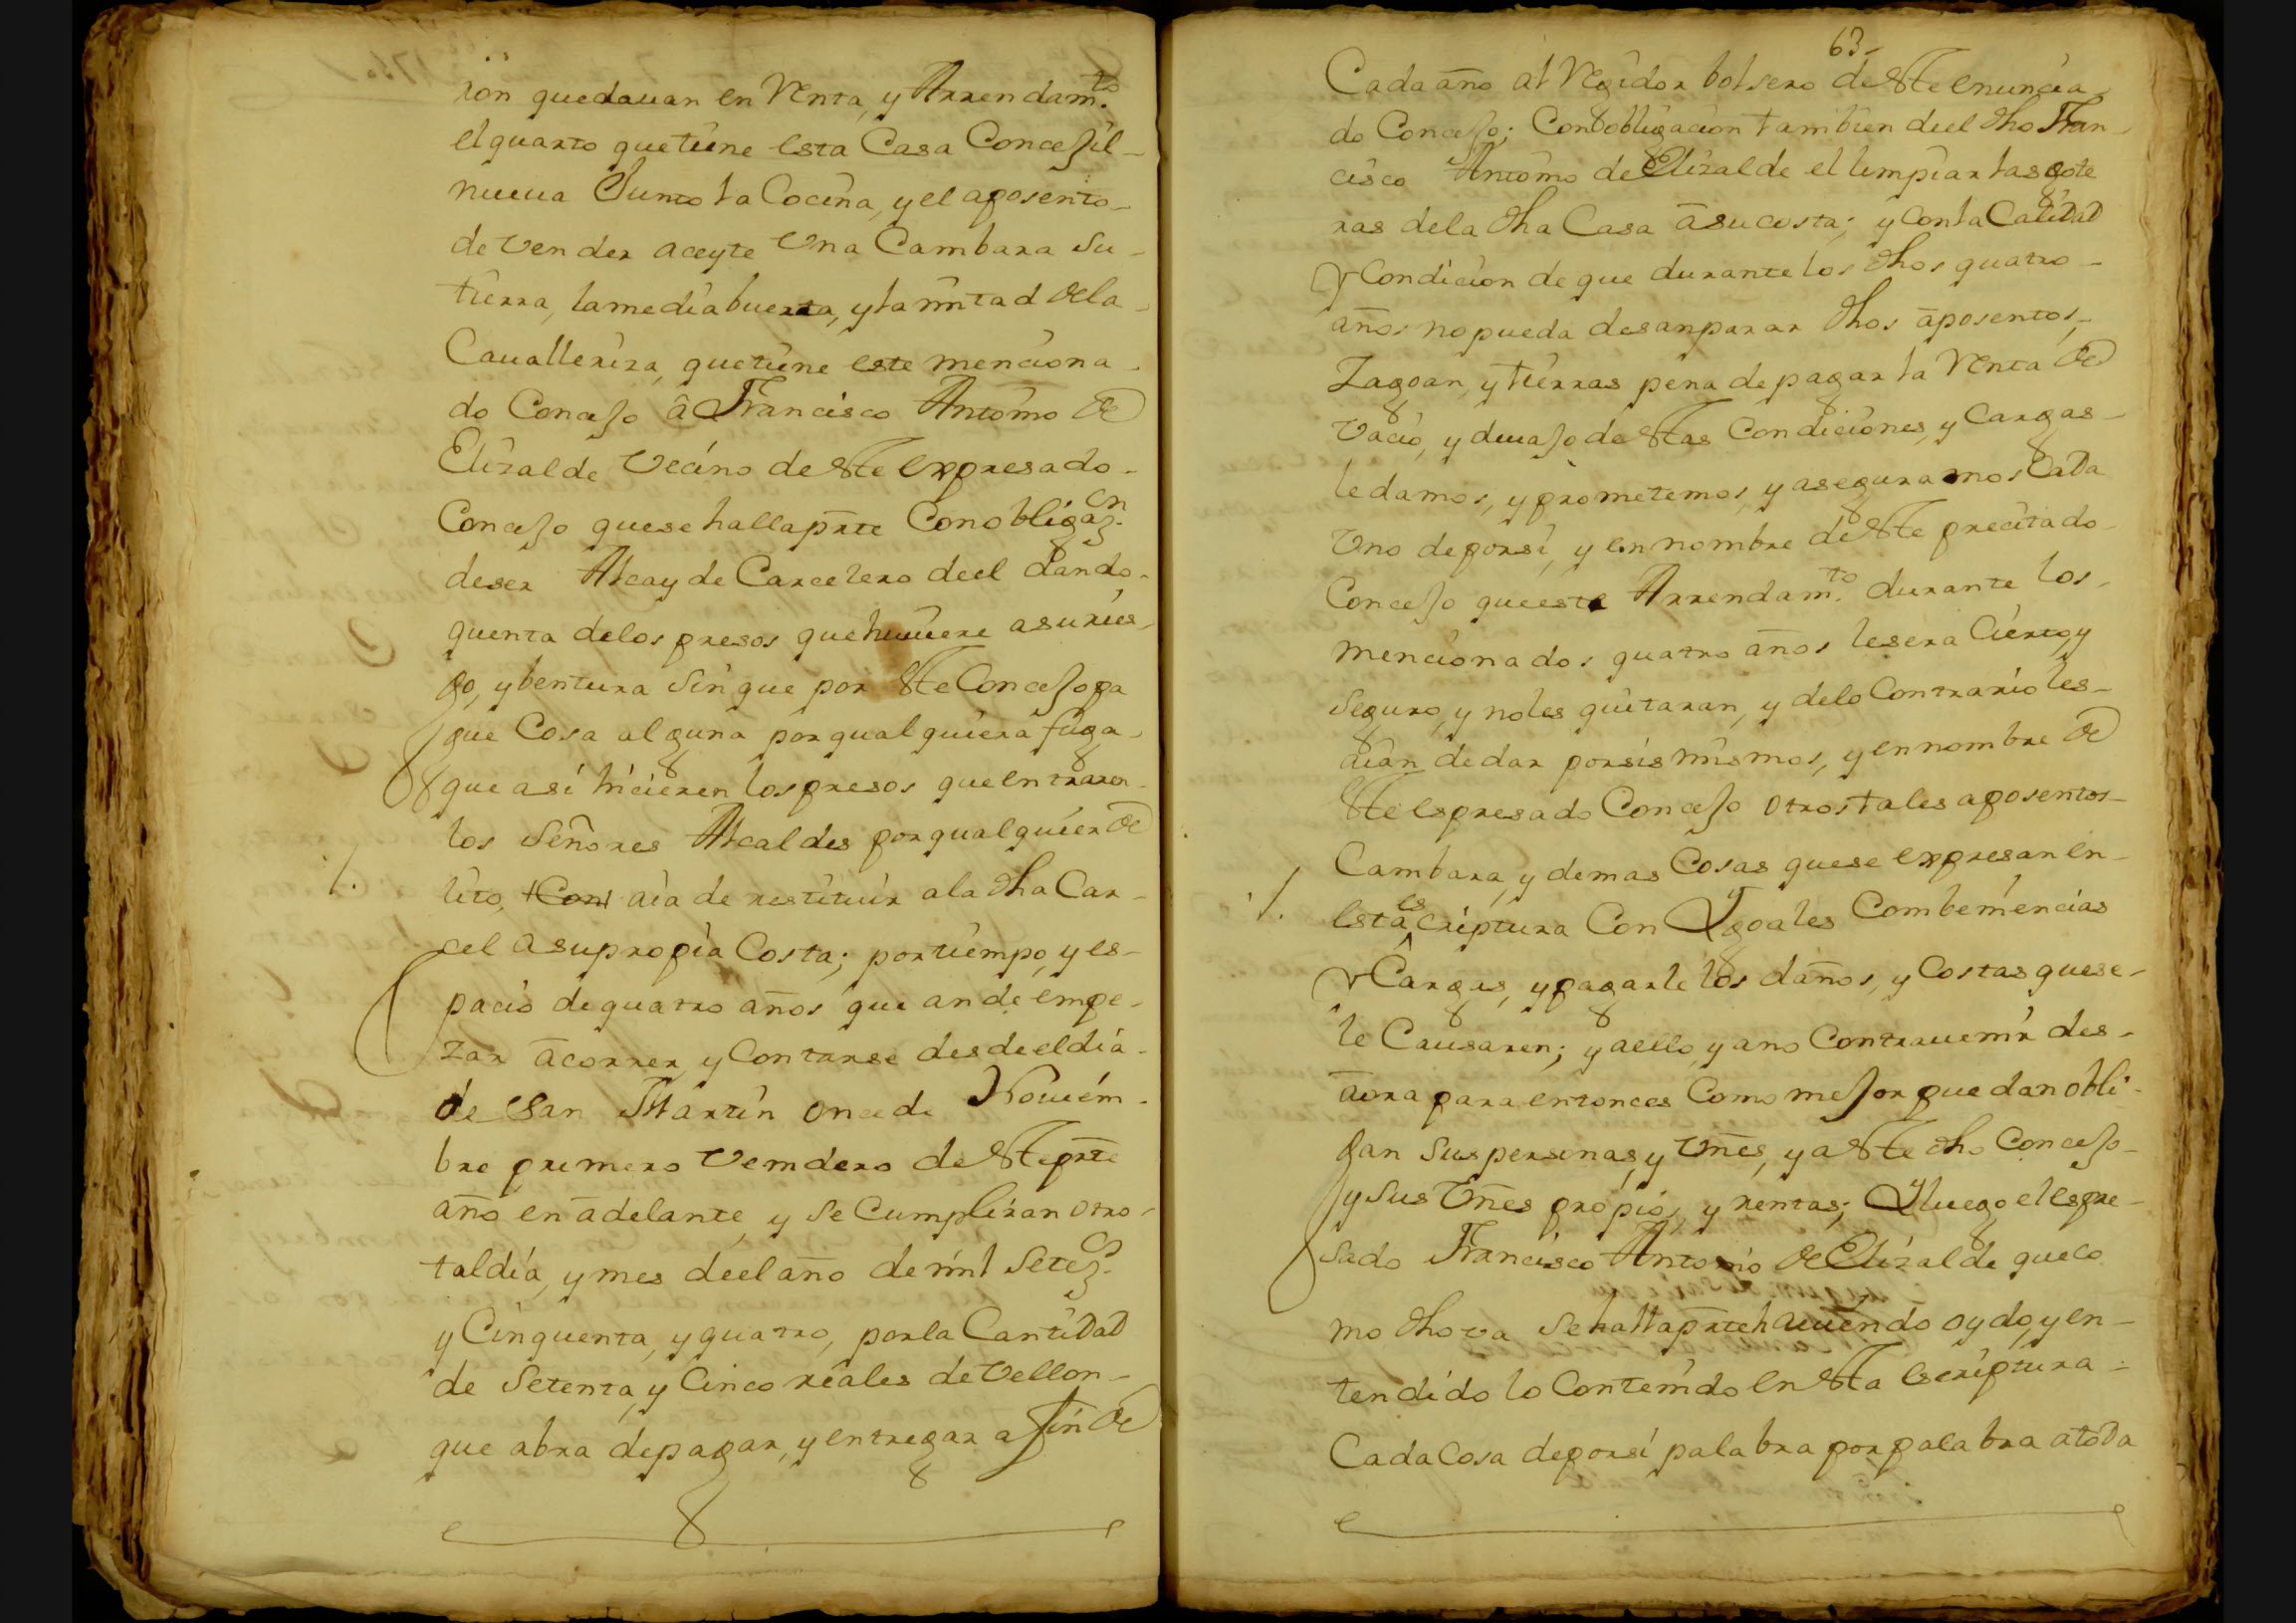 ron quedauan en Renta, y Arrendam.to
el quarto que tiene esta Casa Concejil
nueua Junto la Cocina, y el aposento
de vender aceyte Vna Cambara Su
tierra, la media huerta, y la mitad de la
Cauallerira, que tiene este menciona
do Concejo â Francisco Antonio de
Elizalde Vecino de Ste expresado
Concejo que se halla prte Con obligazn.
de ser Alcayde Carcelero deel dando
quenta de los presos que huuiere a su ries
go, y bentura Sin que por Ste Concejo pa
gue Cosa alguna por qualquiera fuga
que asi hicieren los presos que entraren
los Señores Alcaldes por qualquier de
lito, Con aia de restituir a la dha Car
cel a su propia Costa; por tiempo, y es-
pacio de quatro años que an de empe-
zar a correr, y Contarse desde el dia
de San Martin once de Nouiem
bre primero Vemdero de Ste prte
año en adelante, y Se Cumpliran otro
tal dia, y mes deel año de mil Setez.s
y Cinquenta, y quatro, por la Cantidad
de Setenta, y Cinco reales de Vellon
que abra de pagar, y entregar a fin de
63
Cada año al Regidor bolsero de Ste enuncia
do Concejo; Con obligacion tambien deel dho Fran
cisco Antonio de Elizalde el limpiar las gote
ras de la dha Casa a su costa; y Con la Calidad
y Condicion de que durante los dhos quatro
años no pueda desanparar dhos aposentos,
Zagoan, y tierras pena de pagar la Renta de
Vacio, y deuajo de Stas Condiciones, y Cargas
le damos, y prometemos, y aseguramos Cada
Vno de por si, y en nombre de Ste precitado
Concejo que este Arrendam.to durante los
mencionados quatro años les era Cierto, y
Seguro, y no les quitaran, y de lo Contrario les
aian de dar por sis mismos, y en nombre de
Ste espresado Concejo otros tales aposentos
Cambara, y demas Cosas que se expresan en
esta es criptura Con Ygoales Combeniencias
y Cargas, y pagarle los daños, y Costas que se
le Causaren; y a ello, y a no Contrauenir des
aora para entonces Como mejor quedan obli
gan Sus personas, y Vnes, y a Ste dho Concejo
y Sus Vnes propio, y rentas; Y luego el espre
sado Francisco Antonio de Elizalde que co
mo dho va Se halla prte hauiendo oydo, y en
tendido lo Contenido en Sta escriptura
Cada Cosa de por si palabra por palabra a toda